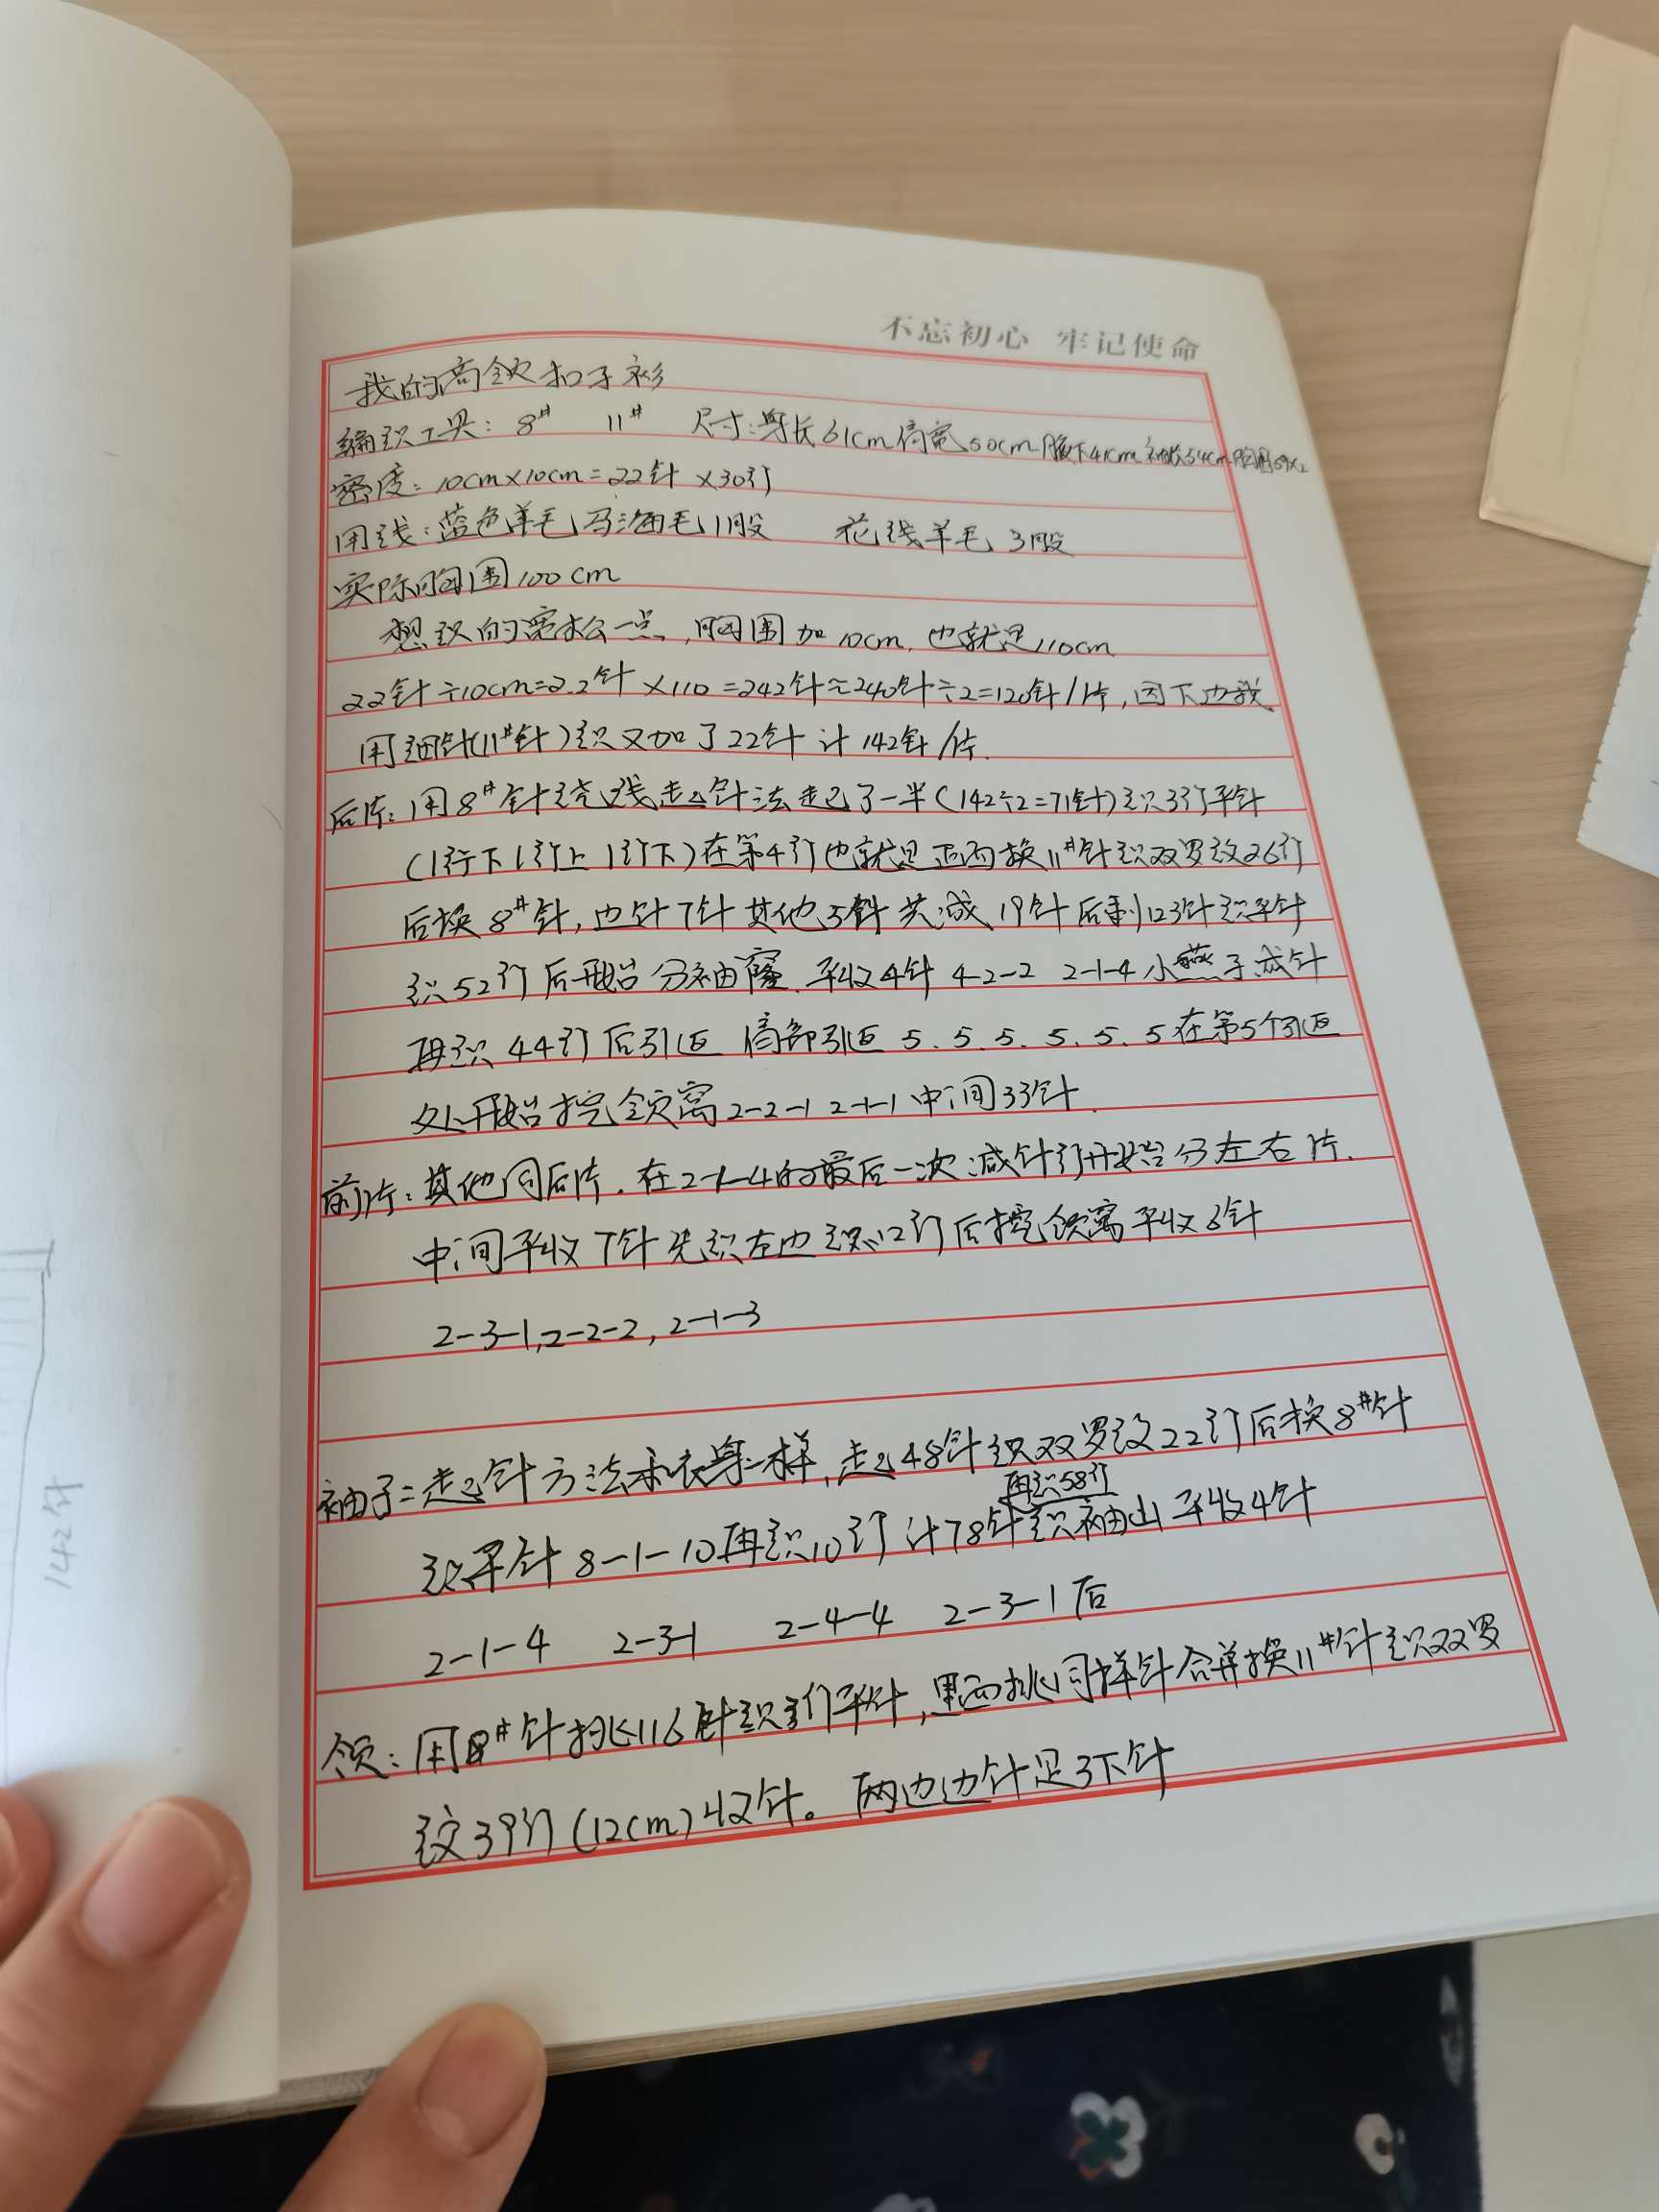 不忘初心 牢记使命
我的高领扣子衫
编织工具: 8# 11# 尺寸:身长61cm肩宽50cm腋下41cm袖长54cm胸围59x2
密度: 10cm×10cm=22针×30行
用线:蓝色羊毛马海毛1股 花线羊毛3股
实际胸围100cm
想织的宽松一点,胸围加10cm,也就是110cm
22针÷10cm=2.2针×110=242针≈240针÷2=120针/片,因下边我
用细针(11#针)织又加了22针计142针/片.
后片:用8#针绕线起针法起了一半(142÷2=71针)织3行平针
(1行下1行上1行下)在第4行也就是正面换11#针织双罗纹26行
后换8#针,边针7针其他5针共减19针后剩123针织平针
织52行后开始分袖窿.平收4针 4-2-2 2-1-4小燕子减针
再织44行后引返 肩部引返5.5.5.5.5.5在第5个引返
处开始挖领窝2-2-1 2-1-1中间33针.
前片:其他同后片.在2-1-4的最后一次减针行开始分左右片.
中间平收7针先织左边织12行后挖领窝平收6针
2-3-1,2-2-2,2-1-3
袖子:起针方法和衣身一样,起48针织双罗纹22行后换8#针
再织58行
织平针8-1-10再织10行计78针织袖山平收4针
2-1-4 2-3-1 2-4-4 2-3-1后
领:用8#针挑116针织3行平针,里面挑同样针合并换11#针织双罗
纹39行(12cm)收针。两边边针是3下针
142针